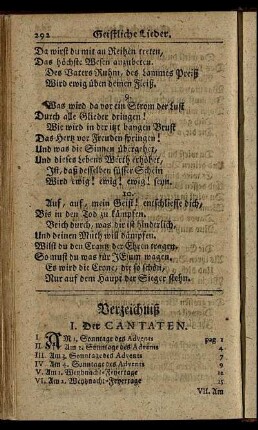 292 Geistliche Lieder.
Da wirst du mit an Reihen treten,
Das höchste Wesen anzubeten.
Des Vaters Ruhm, des Lammes Preiß
Wird ewig üben deinen Fleiß.
9.
Was wird da vor ein Strom der Lust
Durch alle Glieder dringen!
Wie wird in der itzt bangen Brust
Das Hertz vor Freuden springen!
Und was die Sinnen übergehet,
Und dieses Lebens Wörth erhöhet,
Ist, daß desselben süsser Schein
Wird ewig! ewig! ewig! seyn.
10.
Auf, auf, mein Geist! entschliesse dich,
Bis in den Tod zu kämpfen.
Brich durch, was dir ist hinderlich,
Und deinen Muth will dämpfen.
Wilst du den Crantz der Ehren tragen,
So must du was für JEsum wagen.
Es wird die Crone, die so schön,
Nur auf dem Haupt der Sieger stehn.
Verzeichniß
I. Der CANTATEN.
I. AM 1. Sonntage des Advents pag 1
II. Am 2. Sonntage des Advents 4
III. Am 3. Sonntage des Advents 7
IV. Am 4. Sonntage des Advents 9
V. Am 1. Weyhnacht-Feyertage 12
VI. Am 2. Weyhnacht-Feyertage 15
VII. Am